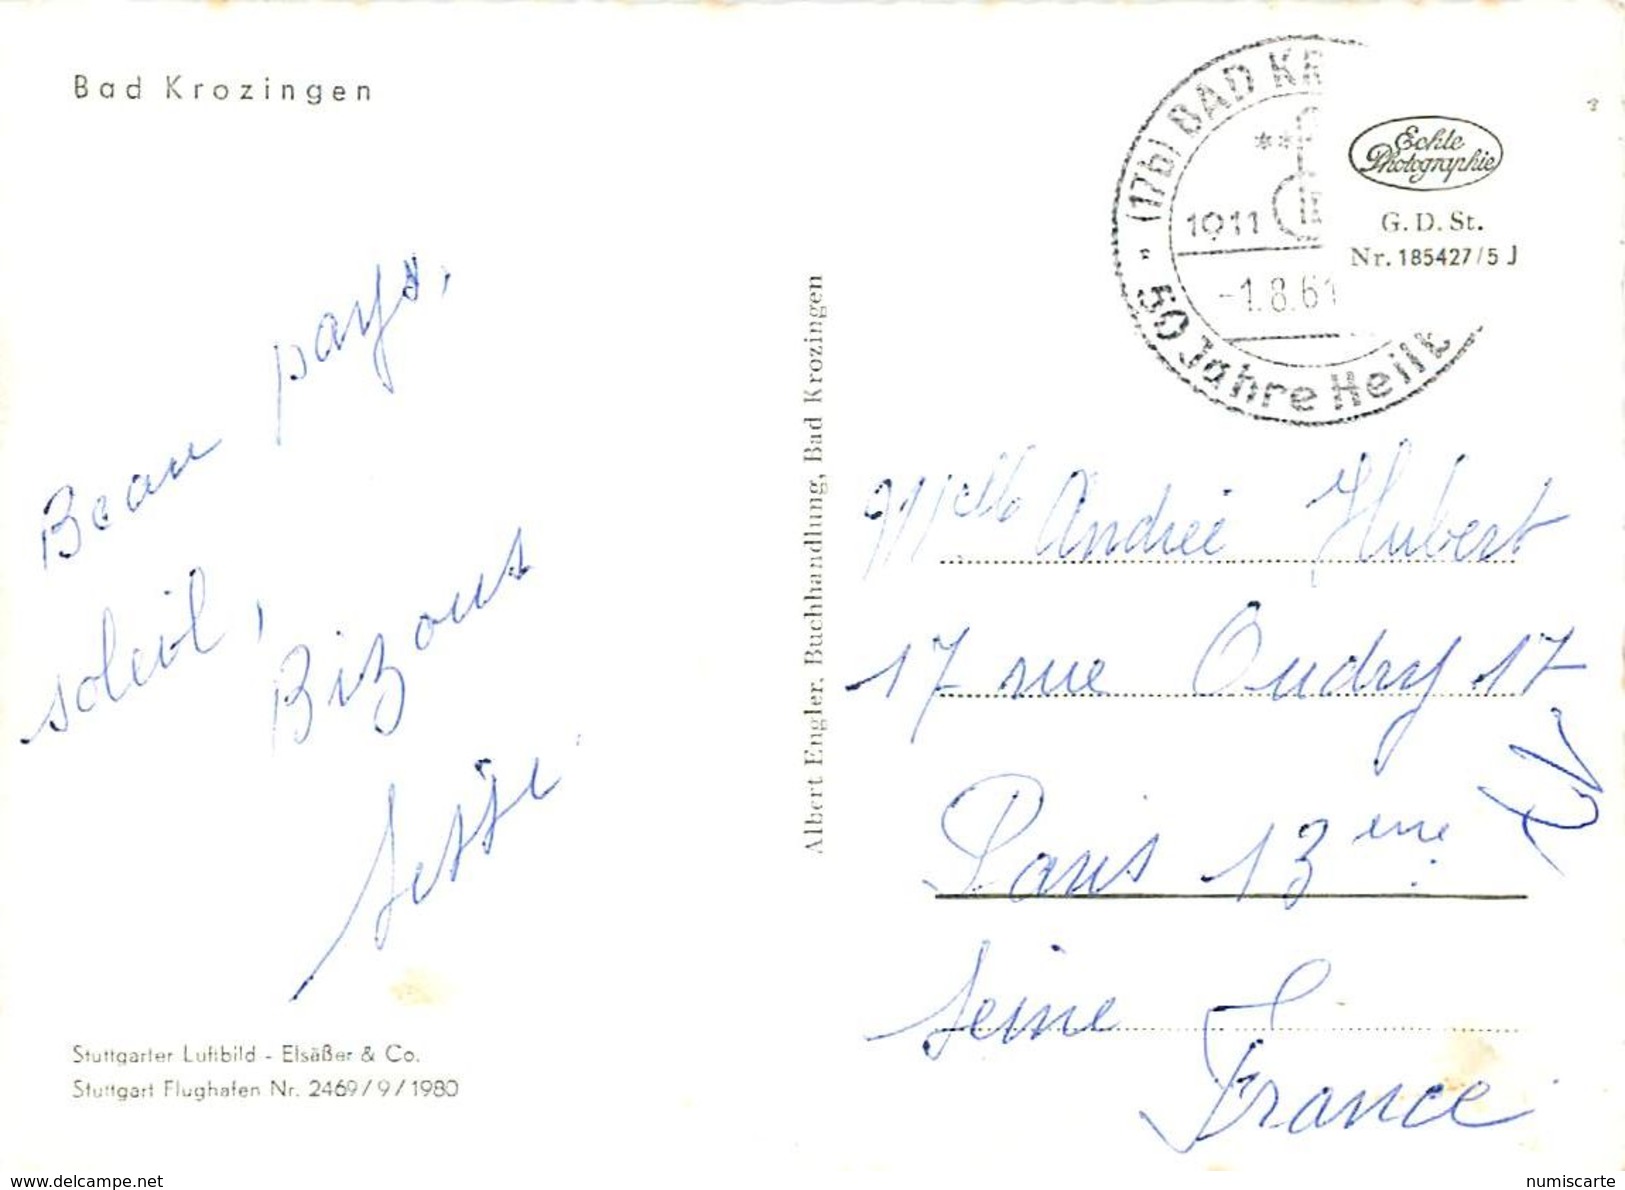 Bad Krozingen
(17b) BAD KR
1911
-1.8.61
50 Jahre Heilb
Echte
Photographie
G. D. St.
Nr. 185427/5 J
Beau pays,
soleil,
Bizous
Albert Engler, Buchhandlung, Bad Krozingen
Melle Andrée Hubert
17 rue Oudry 17
Paris 13 ème
Seine
France
Stuttgarter Luftbild - Elsäßer & Co.
Stuttgart Flughafen Nr. 2469/9/1980
www.delcampe.net
numiscarte